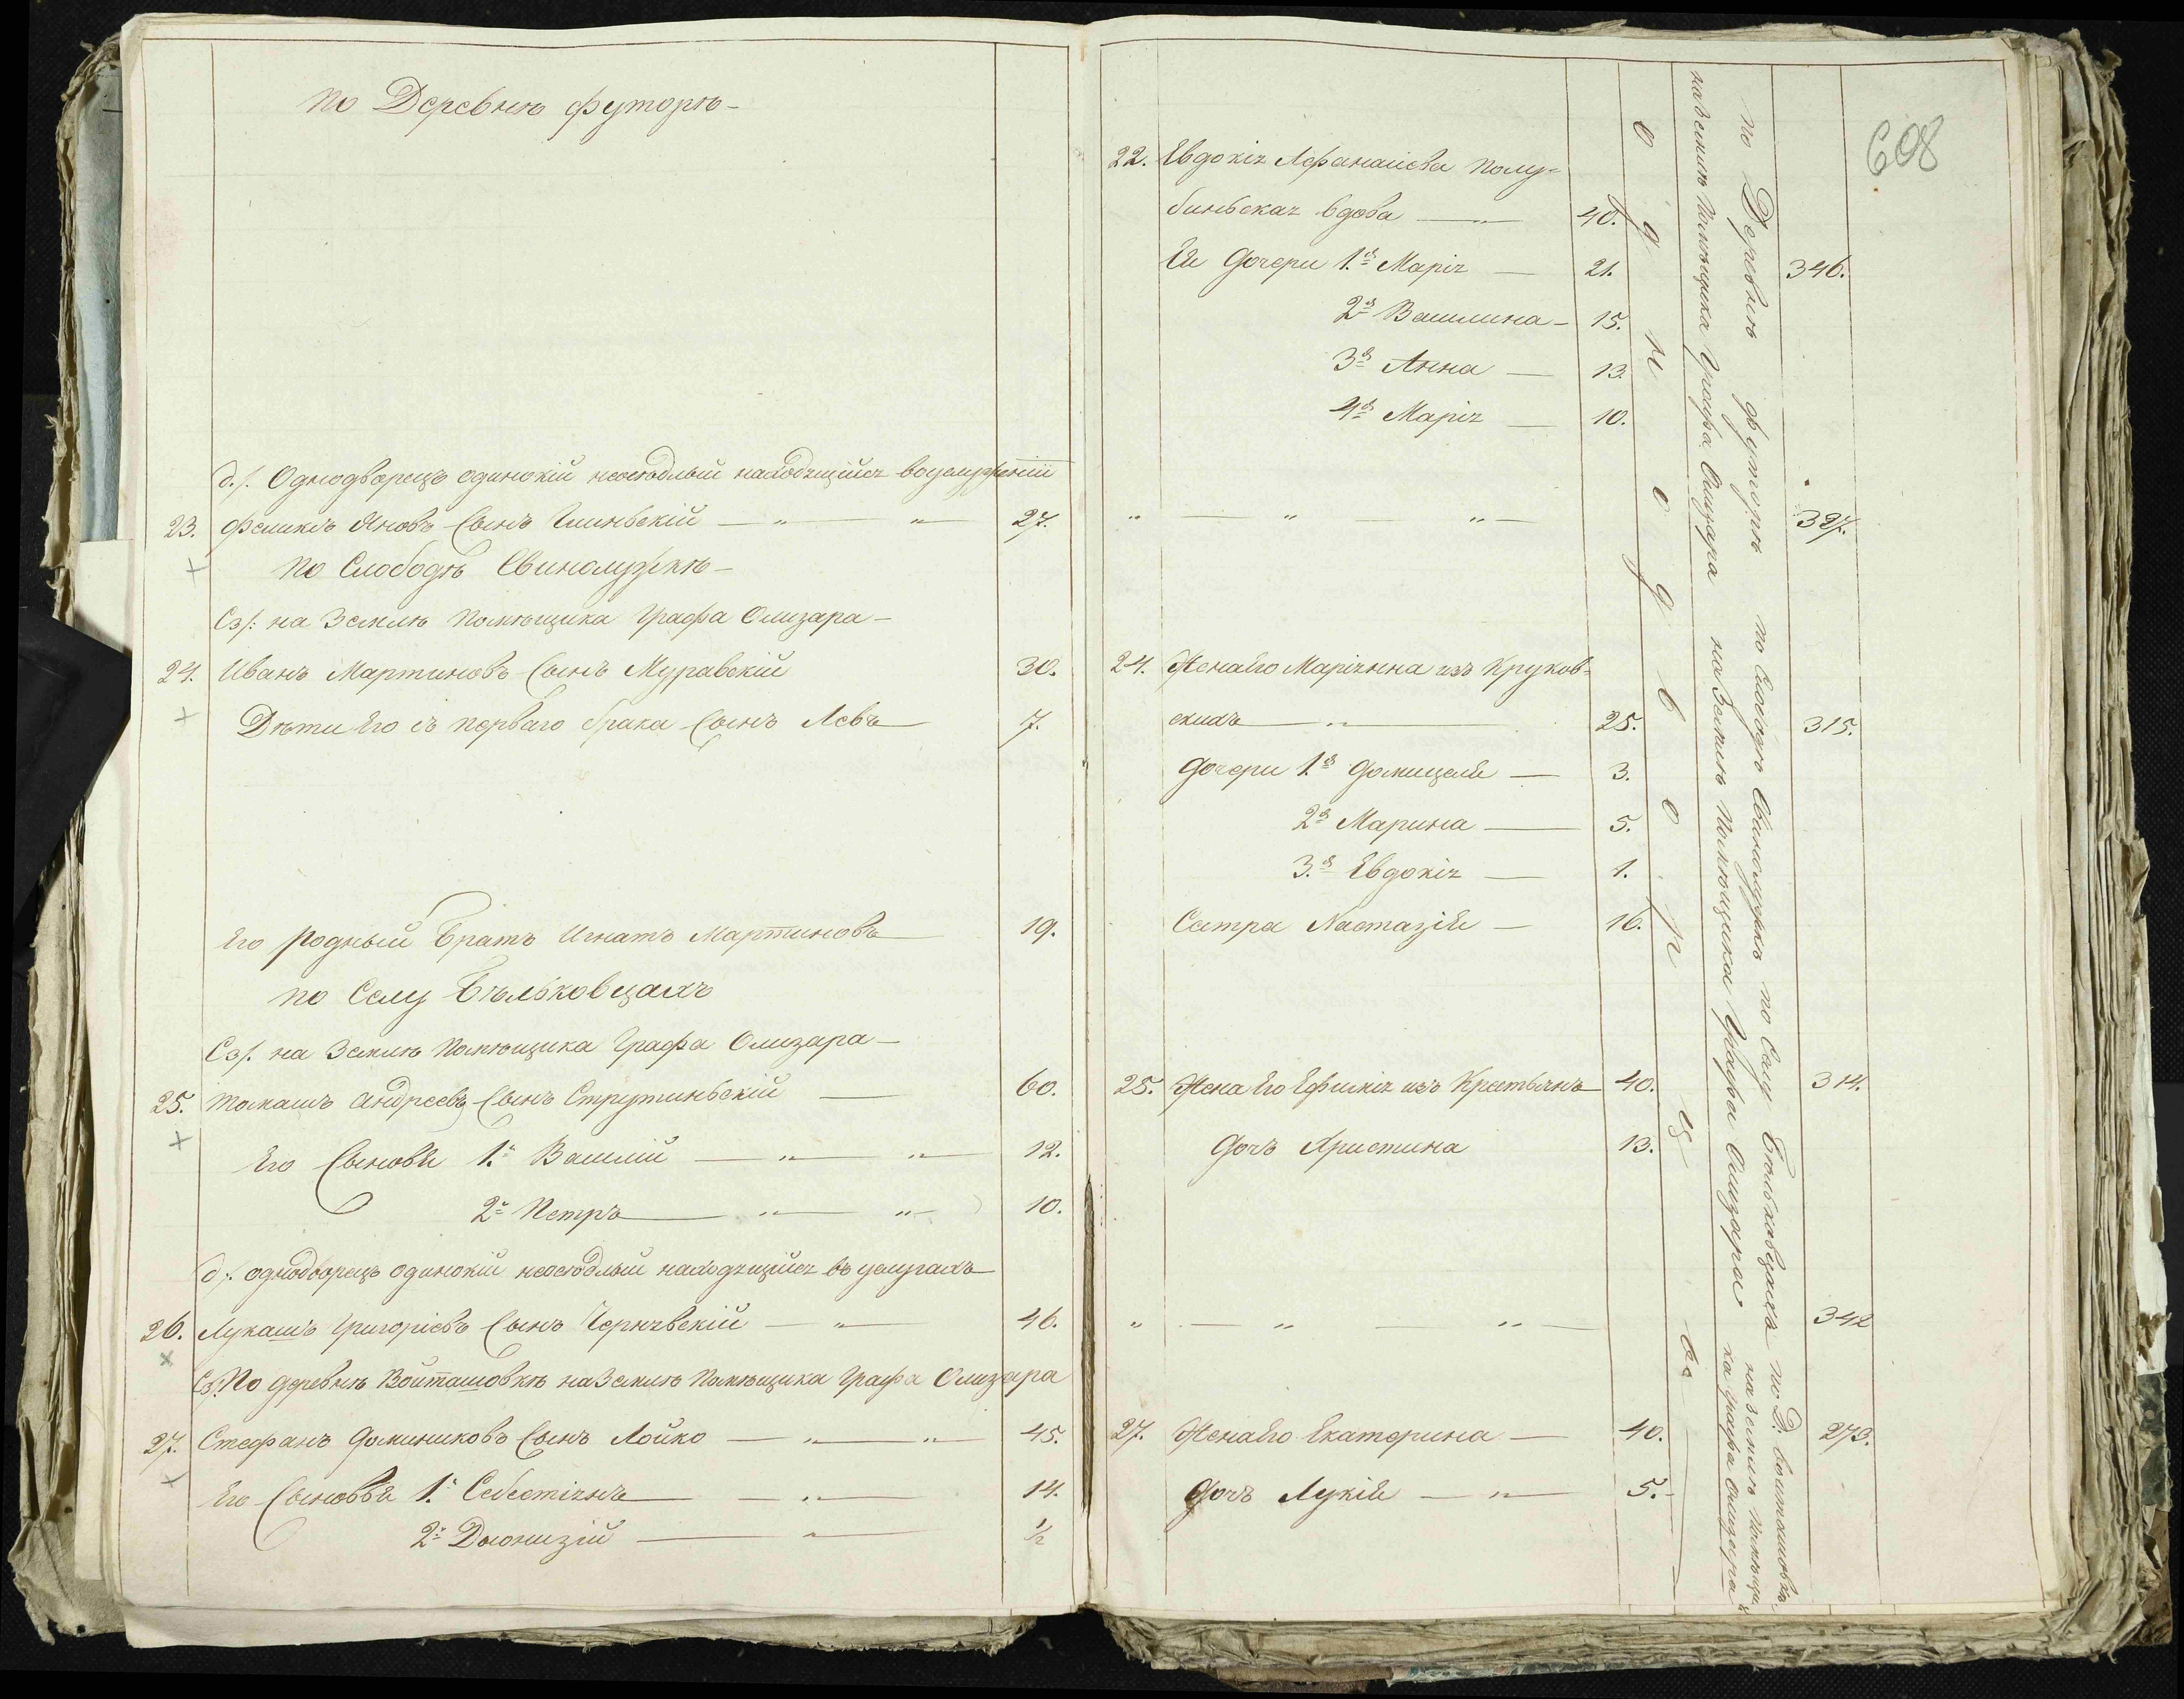 по Деревнѣ футорѣ-
д./. Однодворецъ одинокій неосѣдлый находящійся воуслуженіи
23. Феликсъ Яновъ Сынъ Глиньскій — „ „ 27.
по Слободѣ Свинолужкѣ-
Сз/: на Землѣ Помѣщика Графа Олизара-
24. Иванъ Мартиновъ Сынъ Муравскій 30.
Дѣти Его съ перваго брака Сынъ Левъ 7.
Его родный братъ Игнатъ Мартиновъ 19.
по Селу Бѣльковцахъ
Сз/. на Землѣ Помѣщика Графа Олизара-
25. Томашъ Андреевъ Сынъ Струтиньскій — 60.
Его Сыновья 1й Василій — „ — „ — 12.
2й Петръ — „ — „ 10.
д/. однодворецъ одинокій неосѣдлый находящійся въ услугахъ
26. Лукашъ Григоріевъ Сынъ Чернявскій — „ 46.
Сз/. По деревнѣ Войташовкѣ на Землѣ Помѣщика Графа Олизара
27. Стефанъ Доминиковъ Сынъ Лойко — „ — „ — 45.
Его Сыновья 1й Себестіянъ — „ — 14.
2й Дыонизій — „ — ½
608
22. Евдокія Афанасіева Полу=
биньская вдова — „ 40.
Ея Дочери 1я Марія — 21. 346.
2я Василина - 15.
3я Анна — 13.
4я Марія — 10.
„ — „ — „ — 327.
24. Жена Его Маріянна изъ Круков=
скихъ — „ — 25. 315.
Дочери 1я Домицеля — 3.
2я Марина — 5.
3я Евдокія — 1.
Сестра Настазія — 16.
25. Жена Его Ефимія изъ Крестьянъ 40. 314.
Дочь Христина 13.
„ — „ — „ — 342
27. Жена Его Екатерина — 40. 273.
Дочь Лукія — „ — 5.-
однодворцы
по Деревнѣ футорѣ по Слободѣ Свинолужкѣ по Селу Бѣльковцахъ по Д: войташовкѣ
на Землѣ Помѣщика Графа Олизара на Землѣ Помѣщика Графа Олизара на землѣ Помѣщи=
ка Графа Олизара